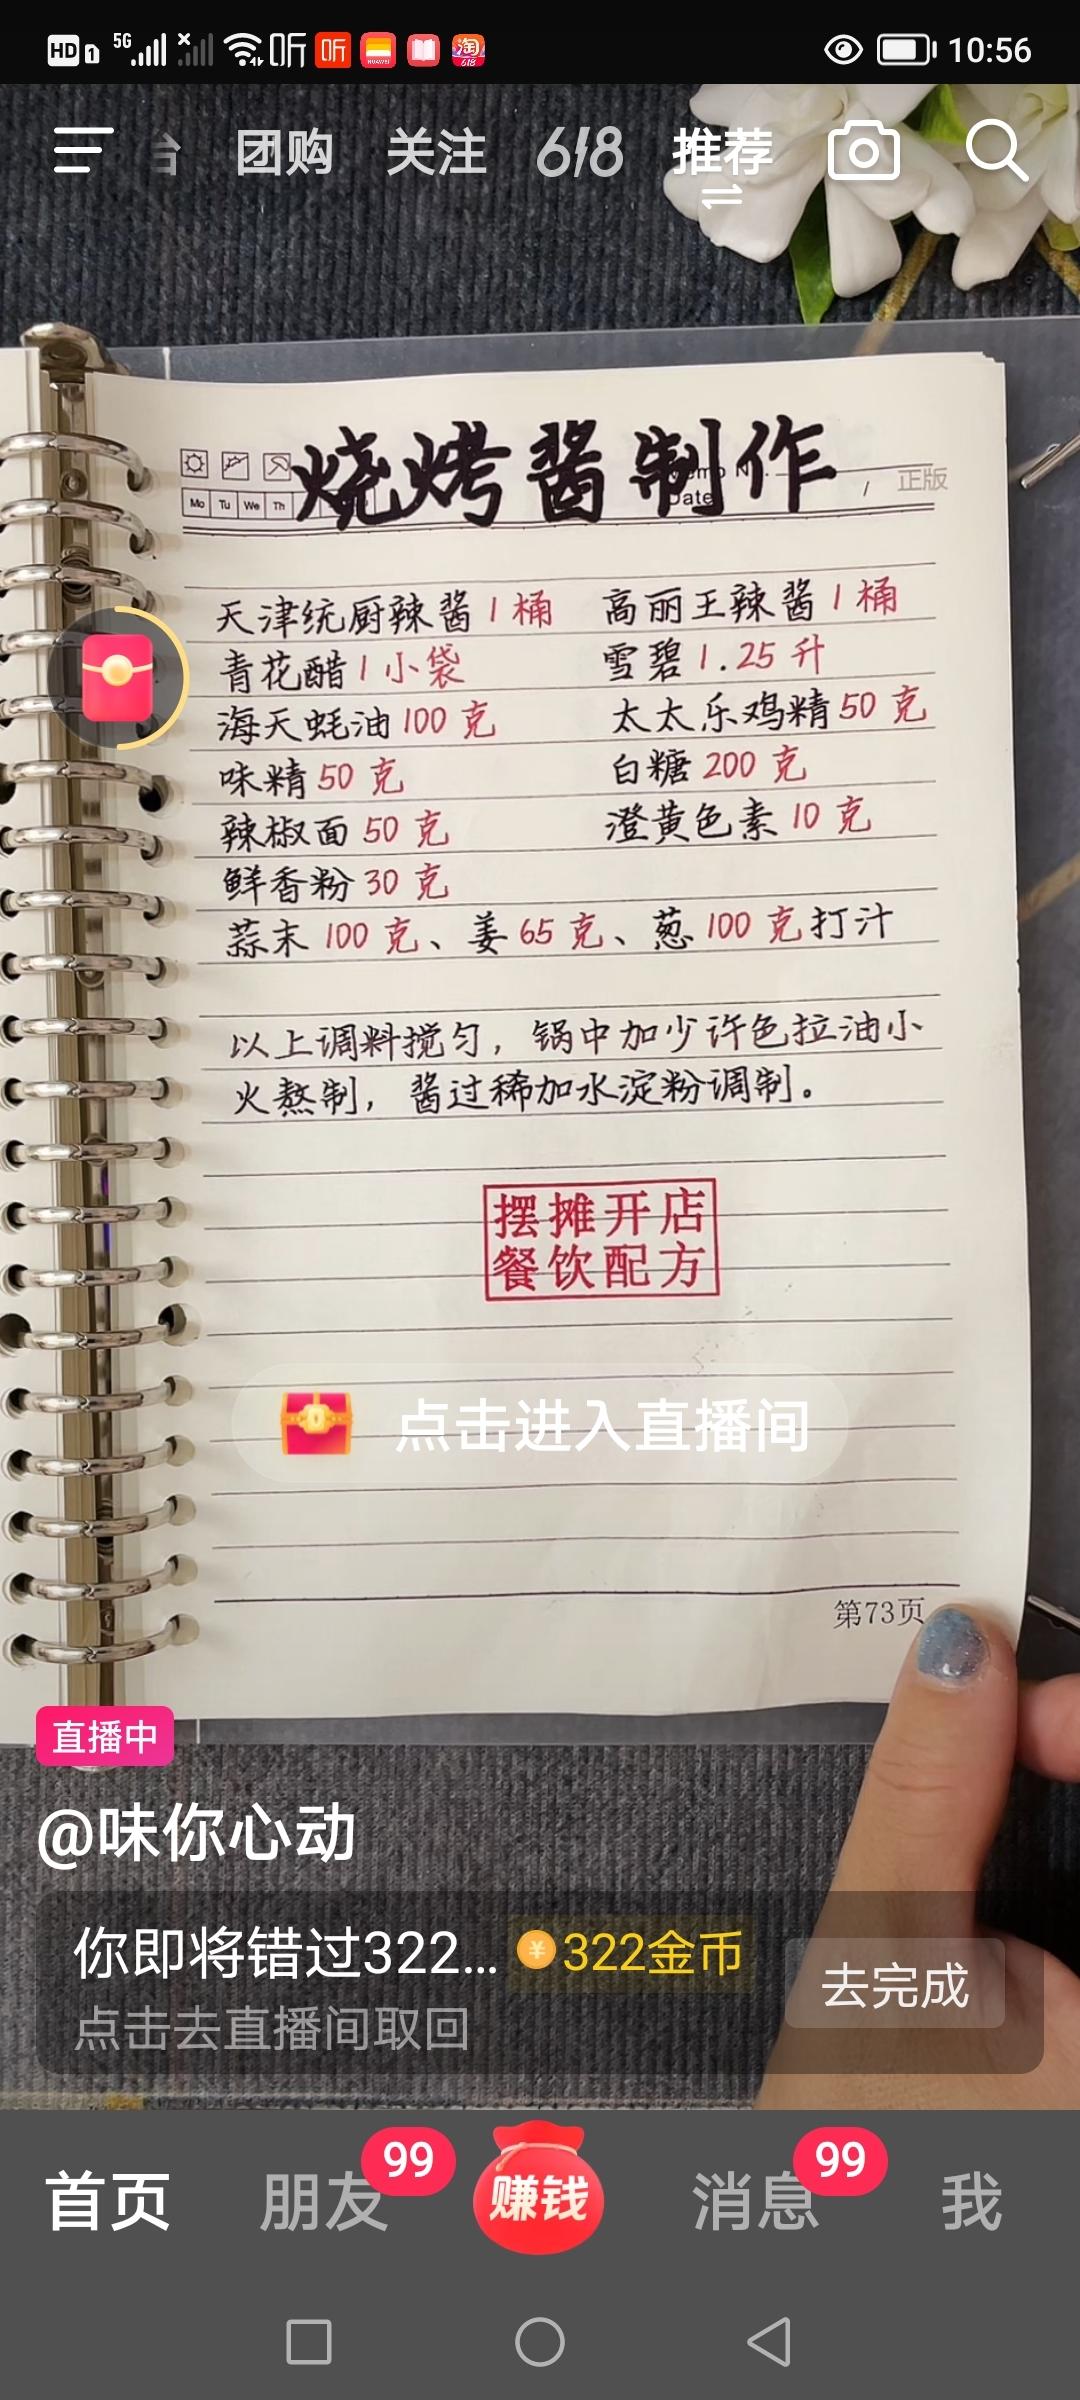 HD 1 5G 听 听 HUAWEI 淘 618 10:56
台 团购 关注 618 推荐
烧烤酱制作
正版
Mo Tu We Th
Date /
天津统厨辣酱1桶 高丽王辣酱1桶
青花醋1小袋 雪碧1.25升
海天蚝油100克 太太乐鸡精50克
味精50克 白糖200克
辣椒面50克 澄黄色素10克
鲜香粉30克
蒜末100克、姜65克、葱100克打汁
以上调料搅匀，锅中加少许色拉油小
火熬制，酱过稀加水淀粉调制。
摆摊开店
餐饮配方
点击进入直播间
第73页
直播中
@味你心动
你即将错过322... 322金币
点击去直播间取回
去完成
首页 朋友 99 赚钱 消息 99 我